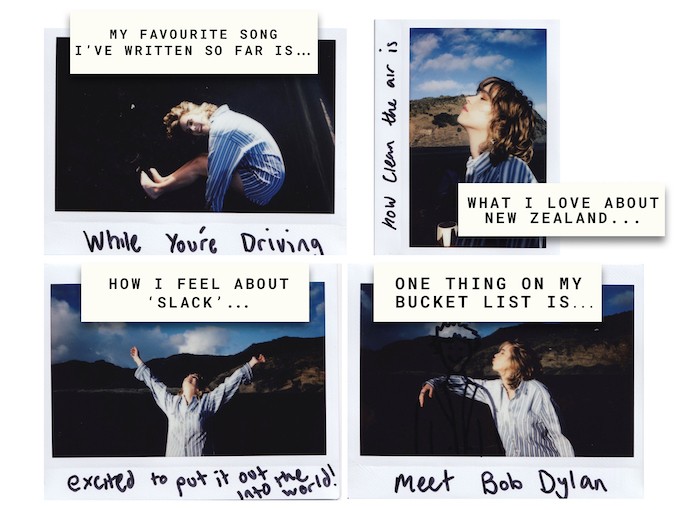 MY FAVOURITE SONG
I'VE WRITTEN SO FAR IS...
While You're Driving
how clean the air is
WHAT I LOVE ABOUT
NEW ZEALAND...
HOW I FEEL ABOUT
'SLACK'...
excited to put it out
into the world!
ONE THING ON MY
BUCKET LIST IS...
Meet Bob Dylan